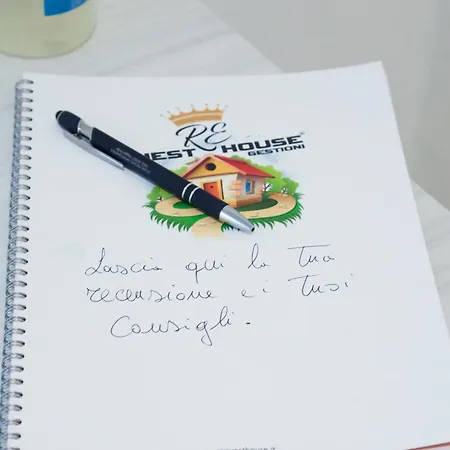 RE
HOUSE
GESTIONI
Lascia qui la Tua
recensione e i Tuoi
Consigli.